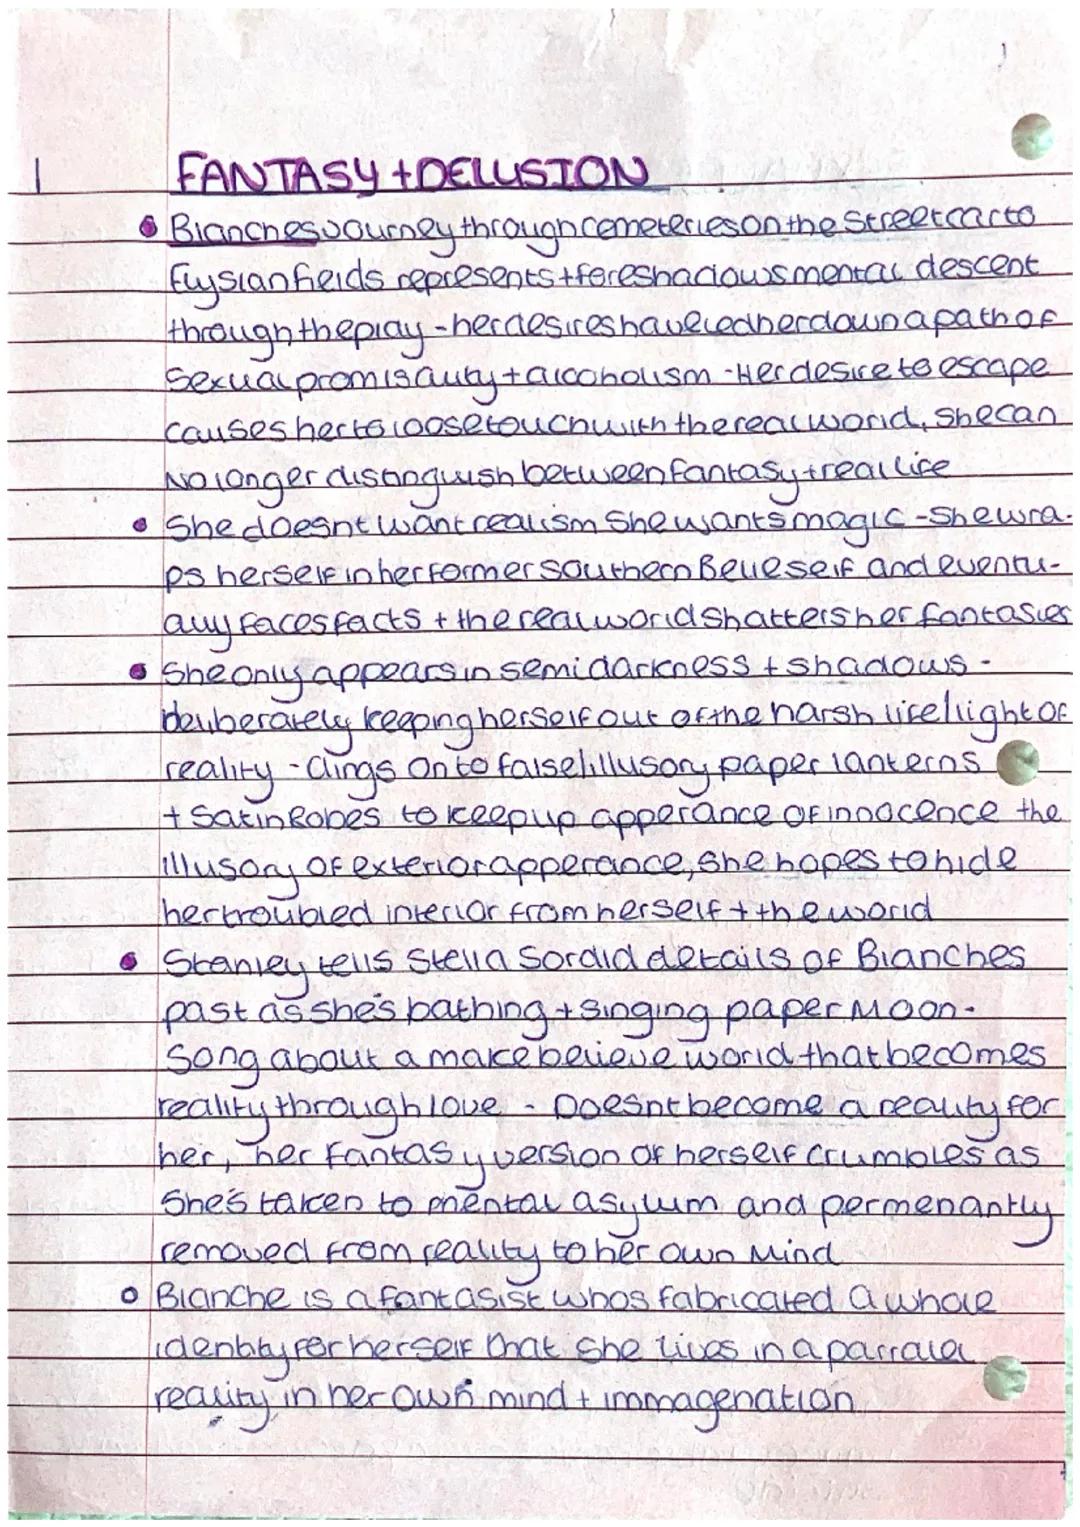 1
FANTASY + DELUSION
Blanches Journey through cemeteries on the Streetcar to
Elysian fields represents + foreshadows mental descent
through the play - her desires have led her down a path of
Sexual promiscuity + alcoholism - Her desire to escape
causes her to loose touch with the real world, she can
No longer distinguish between fantasy + real life
She doesnt want realism She wants magic - She wra-
ps herself in her former southern Belle self and eventu-
ally faces facts + the real world Shatters her fantasies
She only appears in semi darkness + shadows -
deliberately keeping herself out of the harsh life/light of
reality - Clings On to false/illusory paper lanterns
+ Satin Robes to keep up apperance of innocence the
illusory of exterior apperance, she hopes to hide
her troubled interior from herself + the world
Stanley tells Stella Sordid details of Blanches
past as she's bathing + singing paper Moon -
Song about a make believe world that becomes
reality through love - Doesnt become a reality for
her, her fantasy version of herself crumbles as
She's taken to mental asylum and permenantly
removed from reality to her own Mind
Blanche is a fantasist whos fabricated a whole
identity for herself that she lives in a parralel
reality in her own mind + immagenation